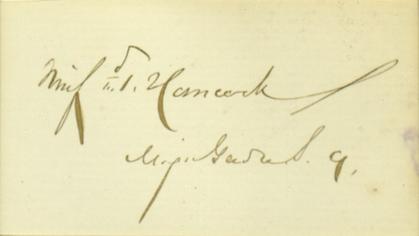 Winf.d S. Hancock
Maj. Gen. U. S. a.